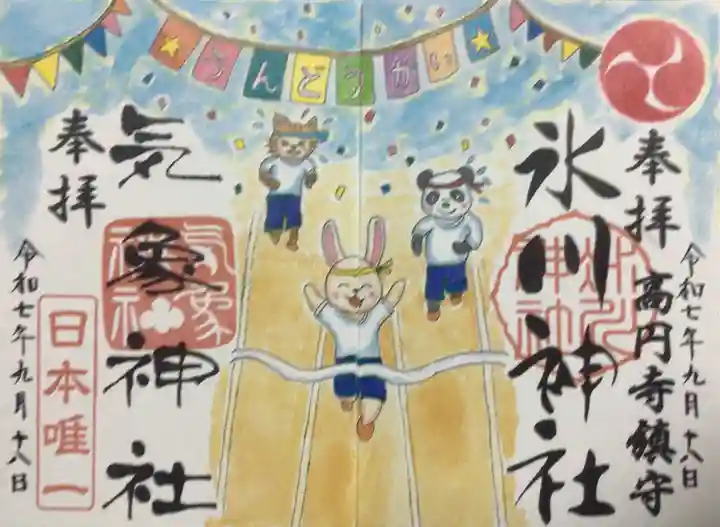 うんどうかい
奉拝
高円寺鎮守
氷川神社
令和七年九月十八日
奉拝
気象神社
令和七年九月十八日
日本唯一
気象神社